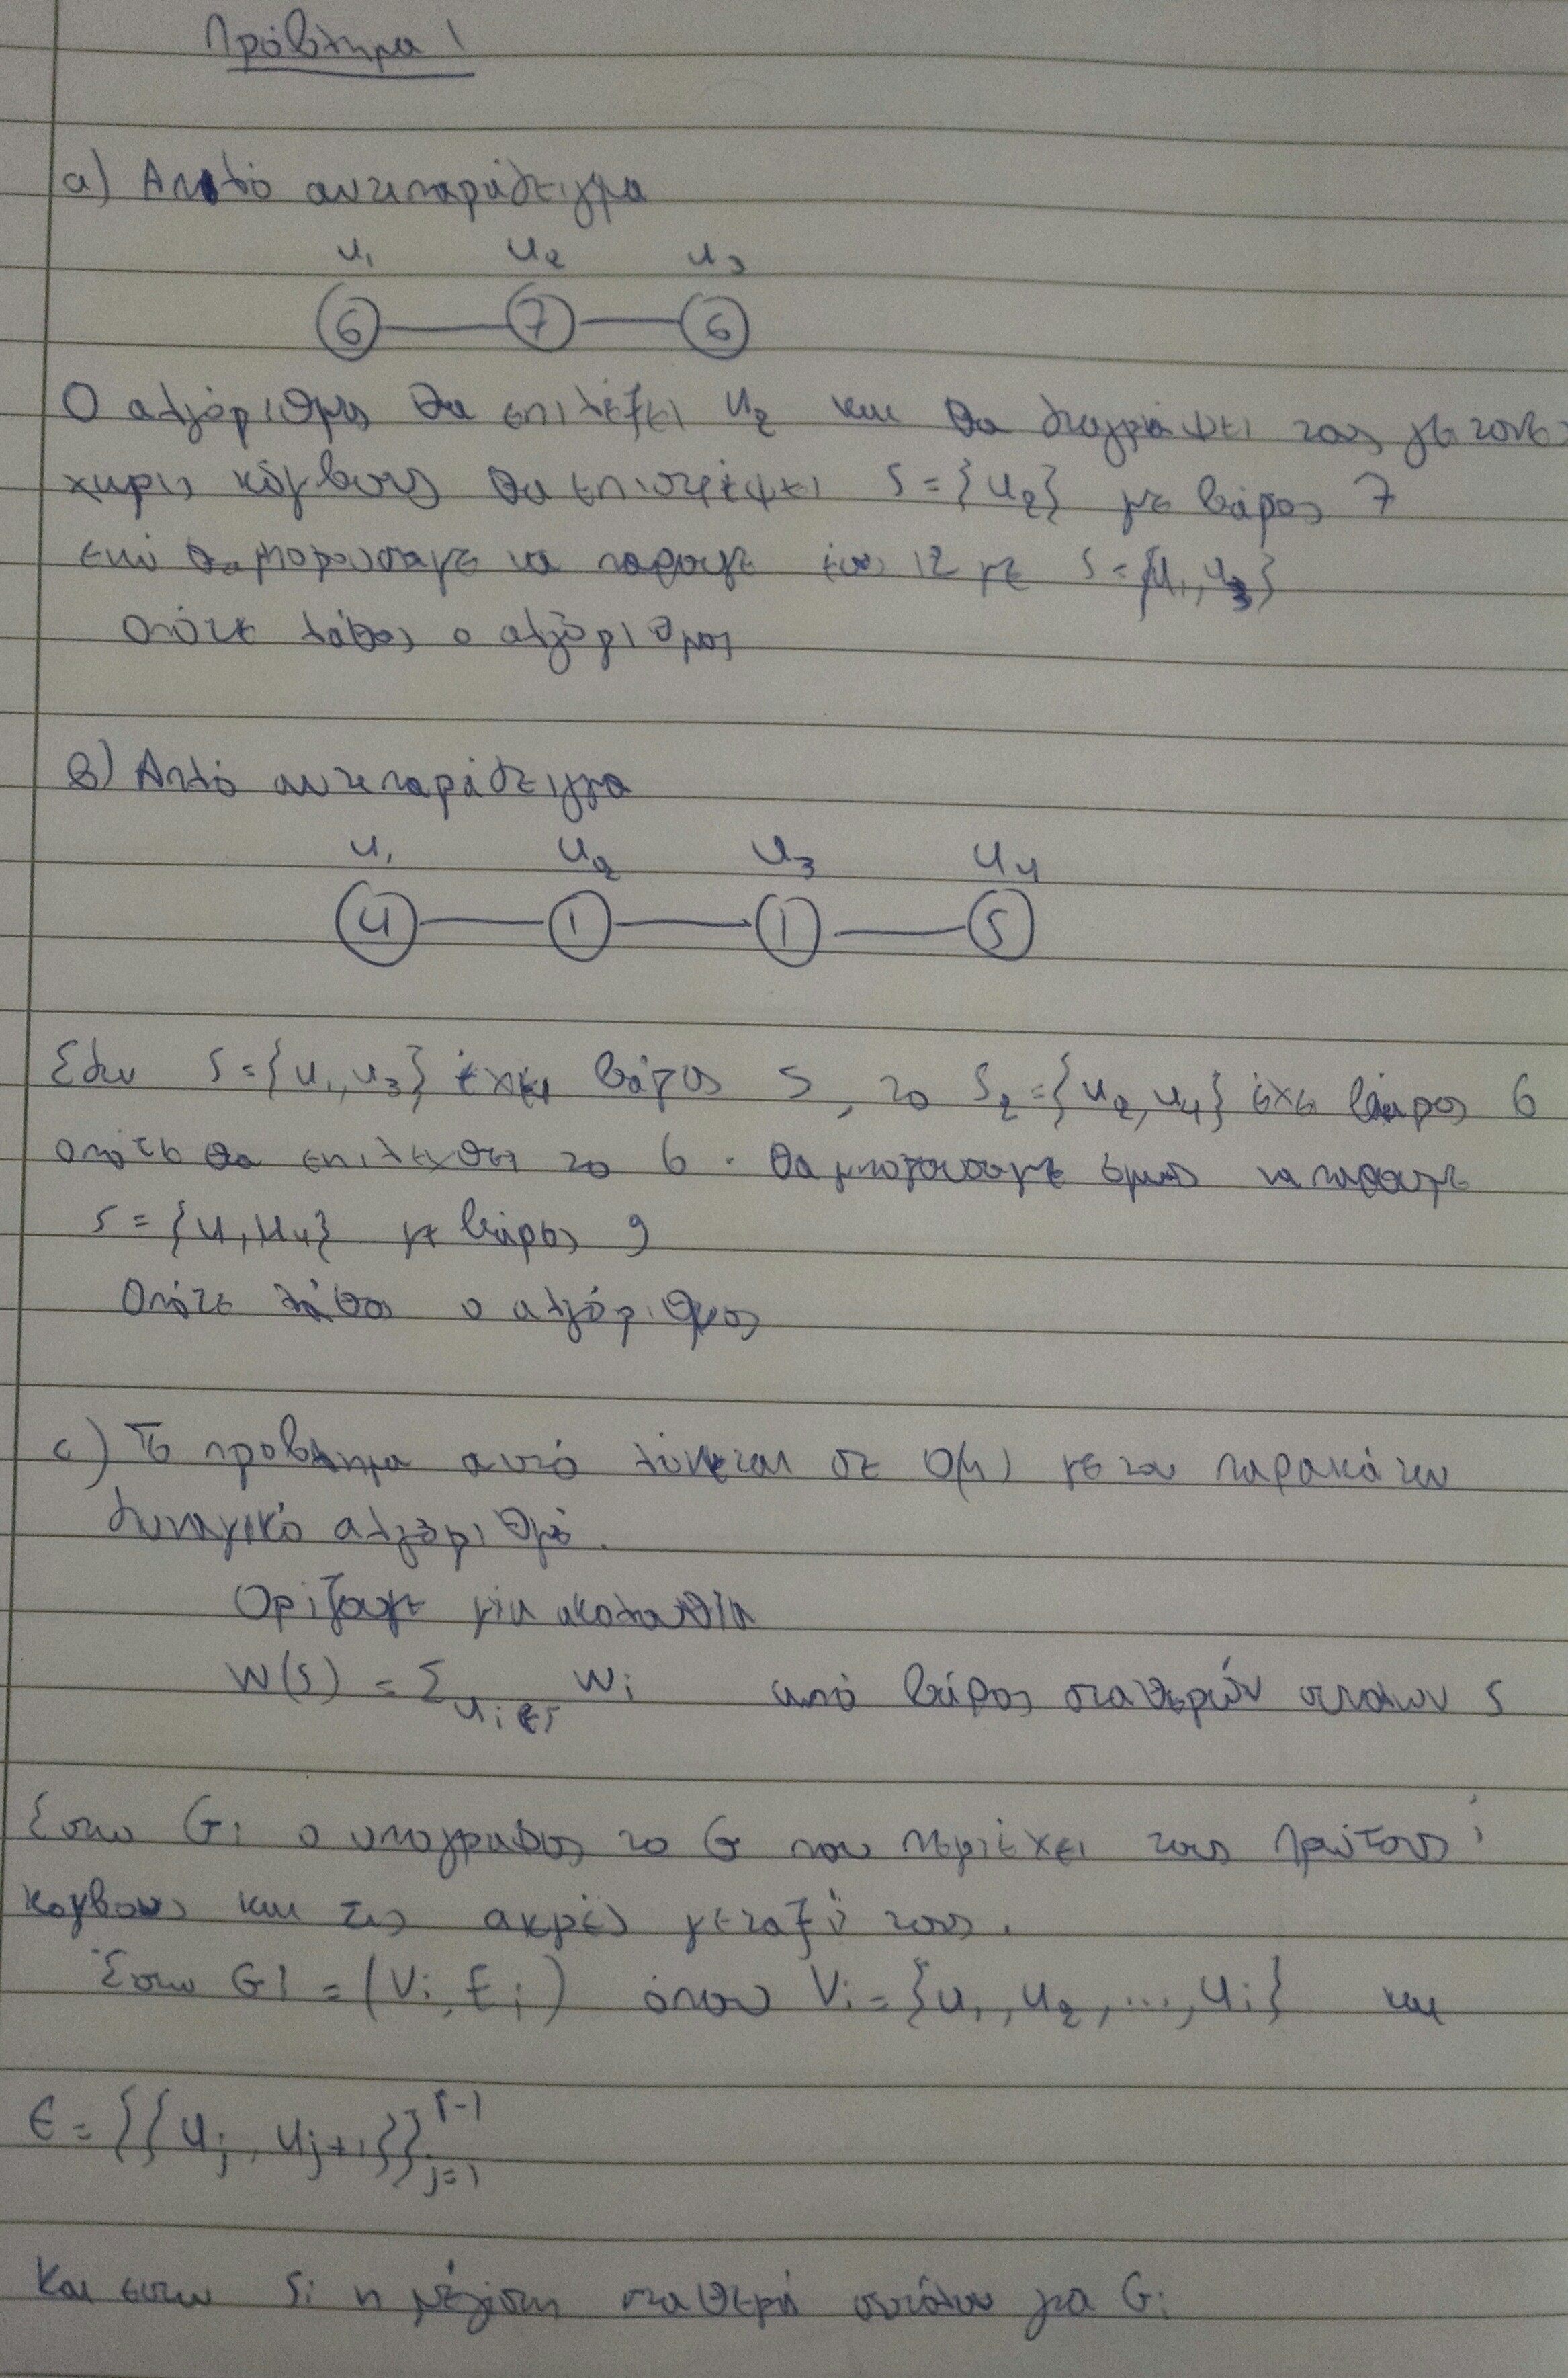 Πρόβλημα 1
α) Απλό αντιπαράδειγμα
u₁ u₂ u₃
6 7 6
Ο αλγόριθμος θα επιλέξει u₂ και θα διαγράψει τους γειτονι
κόμβους θα επιστρέψει S = {u₂} με βάρος 7
ενώ θα μπορουσαμε να παρουμε έως 12 με S = {u₁, u₃}
οπότε λάθος ο αλγόριθμος
β) Απλό αντιπαράδειγμα
u₁ u₂ u₃ u₄
4 1 1 5
Εδω S = {u₁, u₃} έχει βάρος 5, το S₂ = {u₂, u₄} έχει βάρος 6
οπότε θα επιλεχθει το 6. θα μπορουσαμε όμως να παρουμε
S = {u₁, u₄} με βάρος 9
Οπότε λάθος ο αλγόριθμος
c) Το προβλημα αυτό λύνεται σε O(n) με τον παρακάτω
δυναμικό αλγόριθμό.
Ορίζουμε μία ακολουθία
W(S) = Σ uᵢ∈S wᵢ από βάρος σταθερών συνόλων S
Έστω Gᵢ ο υπογραφος το G που περιέχει τους πρώτους i
κομβους και τις ακμές μεταξύ τους.
Έστω Gi = (Vᵢ, Eᵢ) όπου Vᵢ = {u₁, u₂, ..., uᵢ} και
E = {{uⱼ, uⱼ₊₁}}ⁱ⁻¹ⱼ₌₁
Και εστω Sᵢ η μέγιστη σταθερή συνόλου για Gᵢ